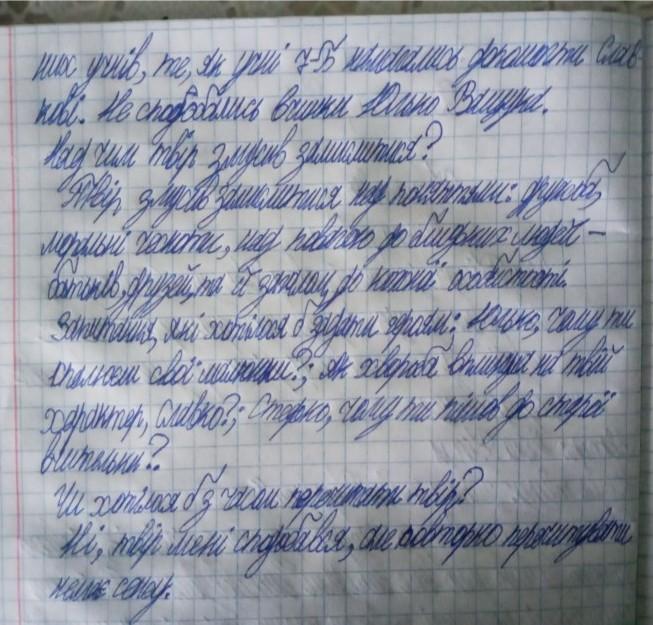 них учнів, те, як учні 7-Б намагались допомогти Слав-
кові. Не сподобались вчинки Юлько Ващука.
Над чим твір змусив замислитися?
Твір змусив замислитися над поняттями: дружба,
моральні чесноти, над повагою до близьких людей –
батьків, друзей, та й загалом до кожної особистості.
Запитання, які хотілося б задати героям: Юлько, чому ти
спалюєш свої малюнки?; Як хвороба вплинула на твій
характер, Славко?; Стефко, чому ти пішов до старої
вчительки?
Чи хотілося б з часом перечитати твір?
Ні, твір мені сподобався, але повторно перечитувати
немає сенсу.